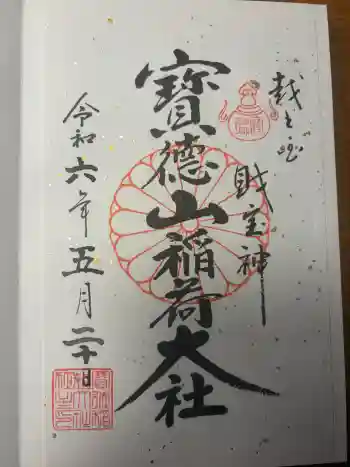 越之国
財宝神
寶德山稲荷大社
令和六年五月二十日